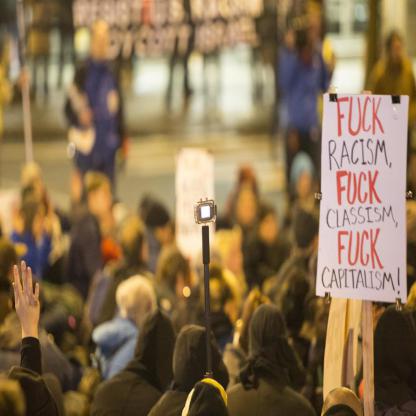 FUCK
RACISM,
FUCK
CLASSISM,
FUCK
CAPITALISM!